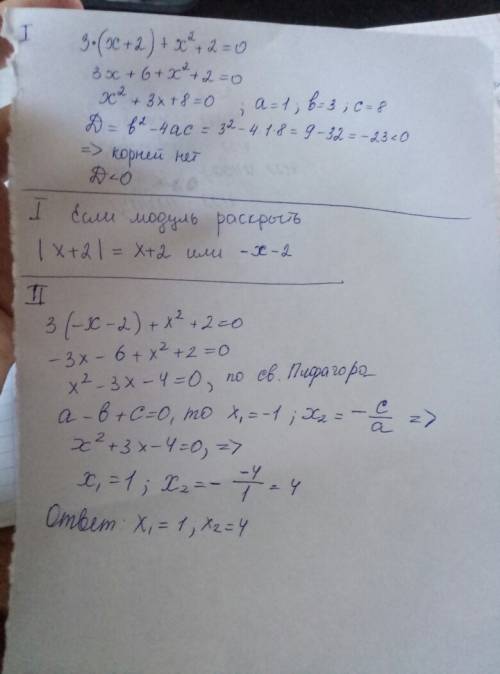 I
3·(x+2)+x²+2=0
3x+6+x²+2=0
x²+3x+8=0 ; a=1; b=3; c=8
D=b²-4ac=3²-4·1·8=9-32=-23<0
=> корней нет
D<0
I Если модуль раскрыть
|x+2|=x+2 или -x-2
II
3(-x-2)+x²+2=0
-3x-6+x²+2=0
x²-3x-4=0, по св. Пифагора
a-b+c=0, то x₁=-1; x₂=-c/a =>
x²+3x-4=0, =>
x₁=1; x₂=- -4/1 =4
Ответ: x₁=1, x₂=4